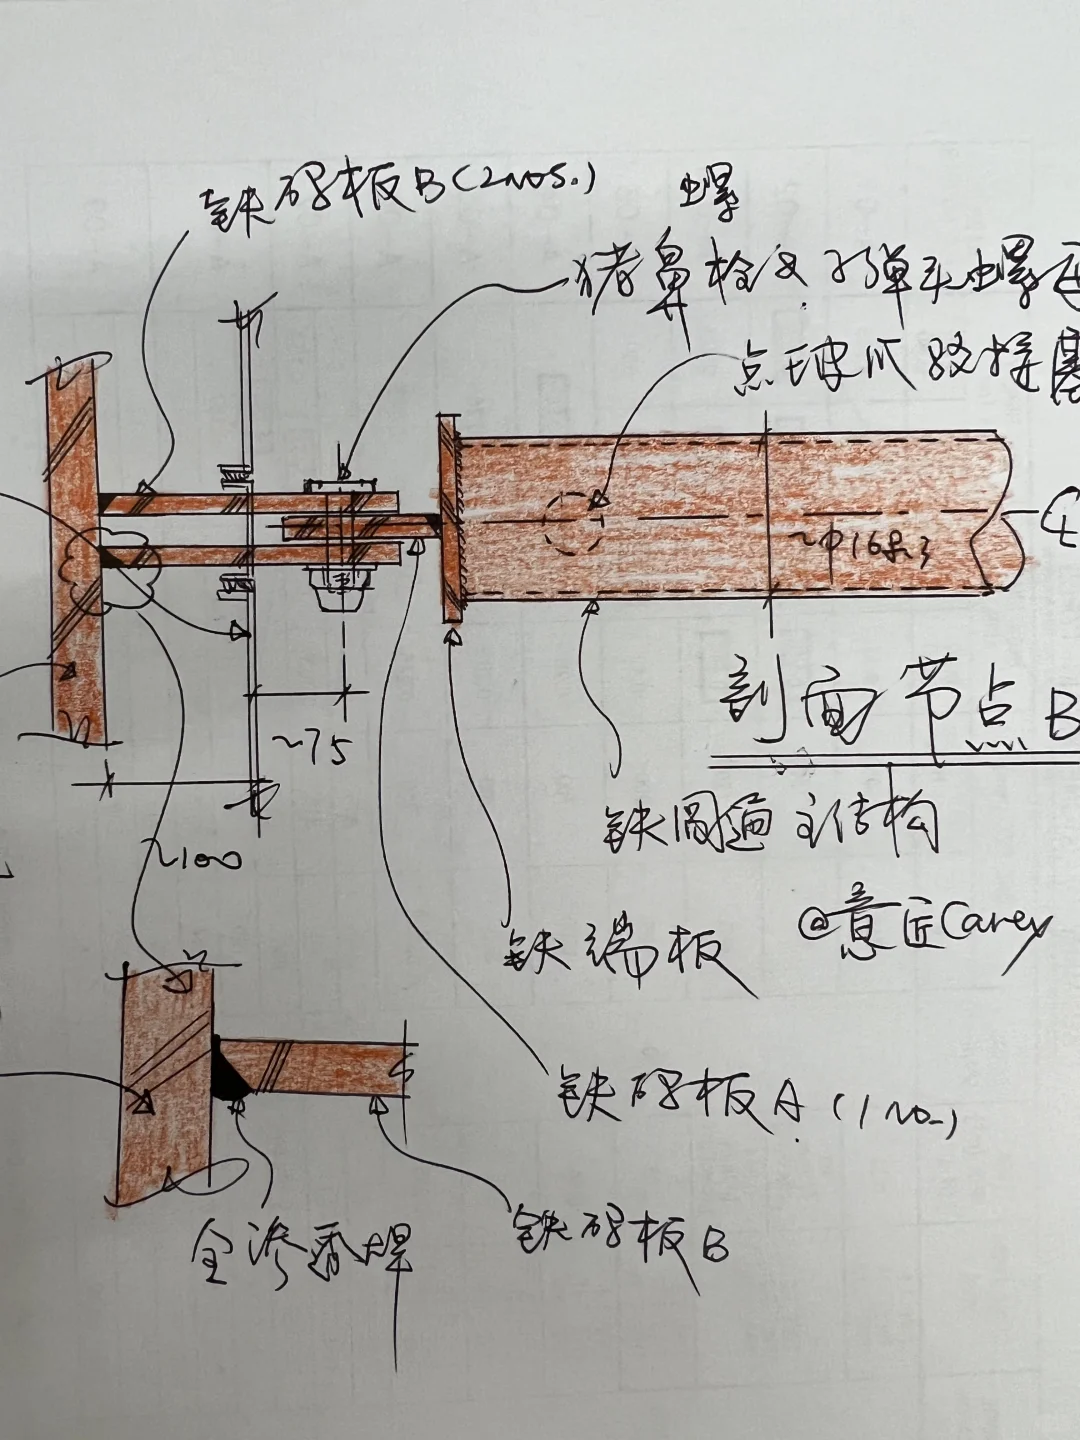 铁码板B(2nos.)
螺
猪鼻栓及子弹头螺
点玻爪
~75
剖面节点B
~100
铁圆通主结构
@意匠Carey
铁端板
铁码板A (1no.)
全渗透焊
铁码板B